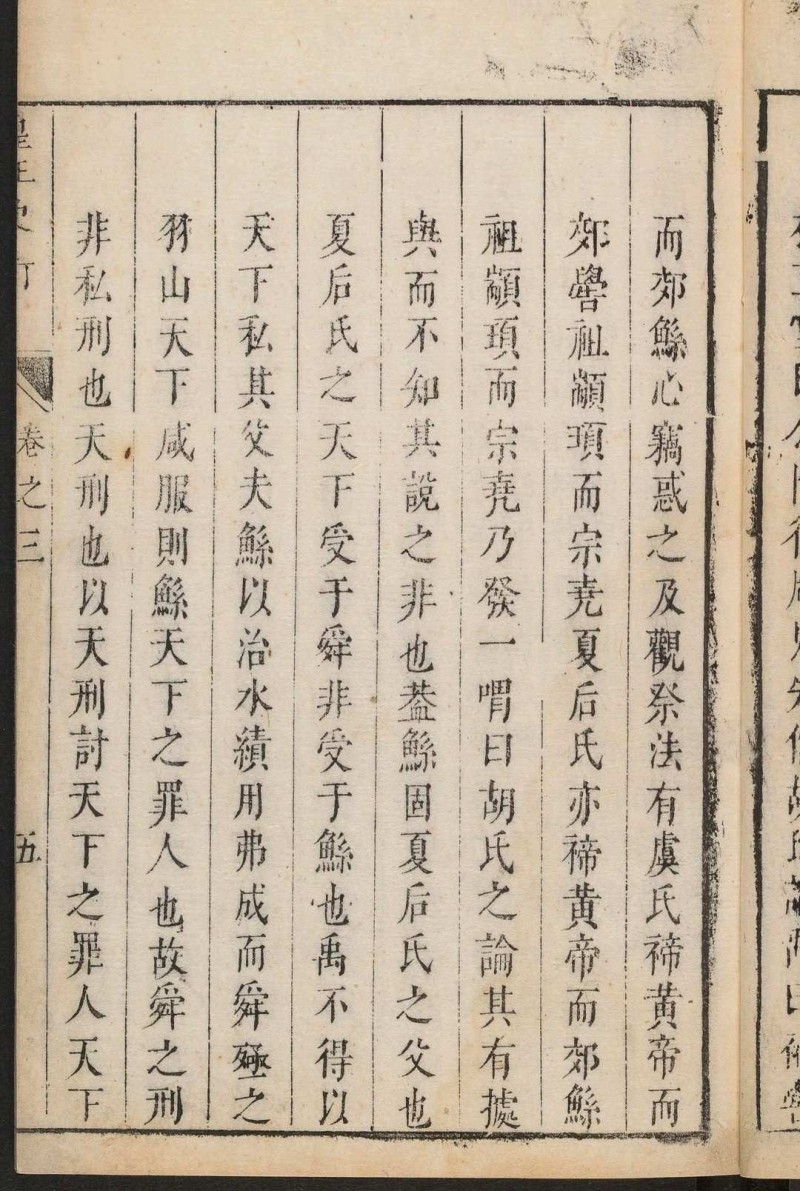 而郊鯀心竊惑之及觀祭法有虞氏禘黃帝而
郊嚳祖顓頊而宗堯夏后氏亦禘黃帝而郊鯀
祖顓頊而宗堯乃發一喟曰胡氏之論其有據
與而不知其說之非也葢鯀固夏后氏之父也
夏后氏之天下受于舜非受于鯀也禹不得以
天下私其父夫鯀以治水績用弗成而舜殛之
羽山天下咸服則鯀天下之罪人也故舜之刑
非私刑也天刑也以天刑討天下之罪人天下
卷之三
五